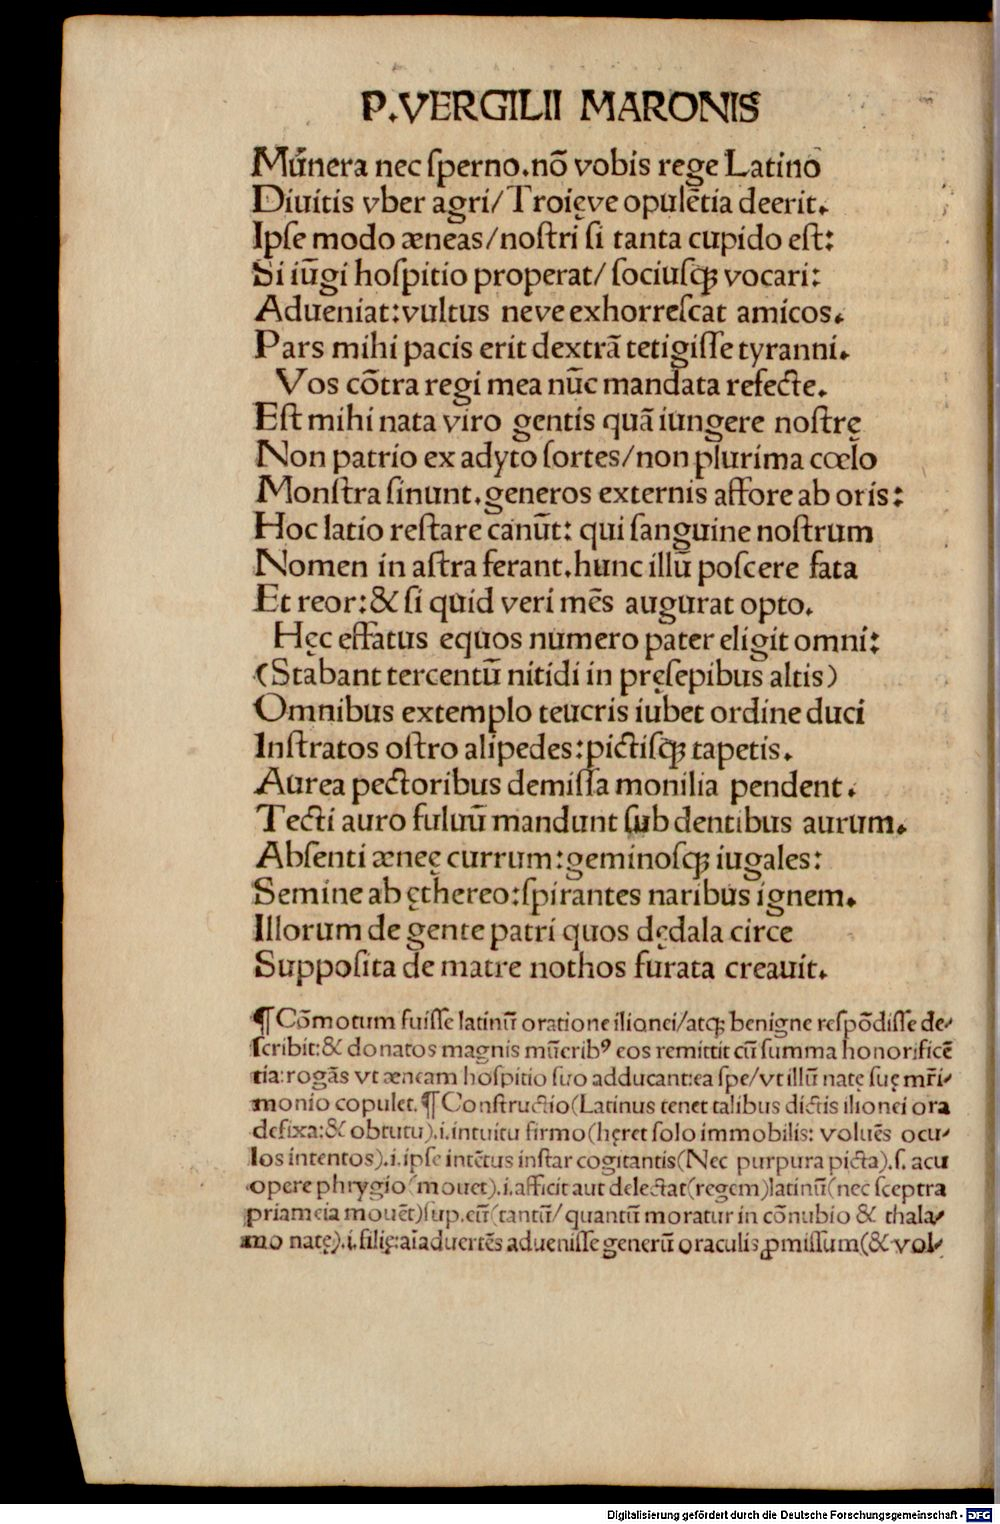 P.VERGILII MARONIS
Mūnera nec ſperno.nō vobis rege Latino
Diuitis vber agri/Troięve opulētia deerit.
Ipſe modo æneas/noſtri ſi tanta cupido eſt:
Si iūgi hoſpitio properat/ ſociuſqꝫ vocari:
Adueniat:vultus neve exhorreſcat amicos.
Pars mihi pacis erit dextrā tetigiſſe tyranni.
Vos cōtra regi mea nūc mandata refecte.
Eſt mihi nata viro gentis quā iungere noſtrę
Non patrio ex adyto ſortes/non plurima cœlo
Monſtra ſinunt.generos externis affore ab oris:
Hoc latio reſtare canūt: qui ſanguine noſtrum
Nomen in aſtra ferant.hunc illū poſcere fata
Et reor:& ſi quid veri mēs augurat opto.
Hęc effatus equos numero pater eligit omni:
(Stabant tercentū nitidi in pręſepibus altis)
Omnibus extemplo teucris iubet ordine duci
Inſtratos oſtro alipedes:pictiſqꝫ tapetis.
Aurea pectoribus demiſſa monilia pendent.
Tecti auro fuluū mandunt ſub dentibus aurum.
Abſenti æneę currum:geminoſqꝫ iugales:
Semine ab ęthereo:ſpirantes naribus ignem.
Illorum de gente patri quos dędala circe
Suppoſita de matre nothos furata creauit.
¶Cōmotum fuiſſe latinū oratione ilionei/atqꝫ benigne reſpōdiſſe de⸗
ſcribit:& donatos magnis mūeribꝰ eos remittit cū ſumma honorificē
tia:rogās vt æneam hoſpitio ſuo adducant:ea ſpe/vt illū natę ſuę mr̄i⸗
monio copulet.¶Conſtructio(Latinus tenet talibus dictis ilionei ora
defixa:& obtutu).i.intuitu firmo(hęret ſolo immobilis: voluēs ocu⸗
los intentos).i.ipſe intētus inſtar cogitantis(Nec purpura picta).ſ. acu
opere phrygio(mouet).i.afficit aut delectat(regem)latinū(nec ſceptra
priameia mouēt)ſup.eū(tantū/ quantū moratur in cōnubio & thala⸗
mo natę).i.filię:aīaduertēs adueniſſe generū oraculis ꝓmiſſum(& vol⸗
Digitalisierung gefördert durch die Deutsche Forschungsgemeinschaft - DFG